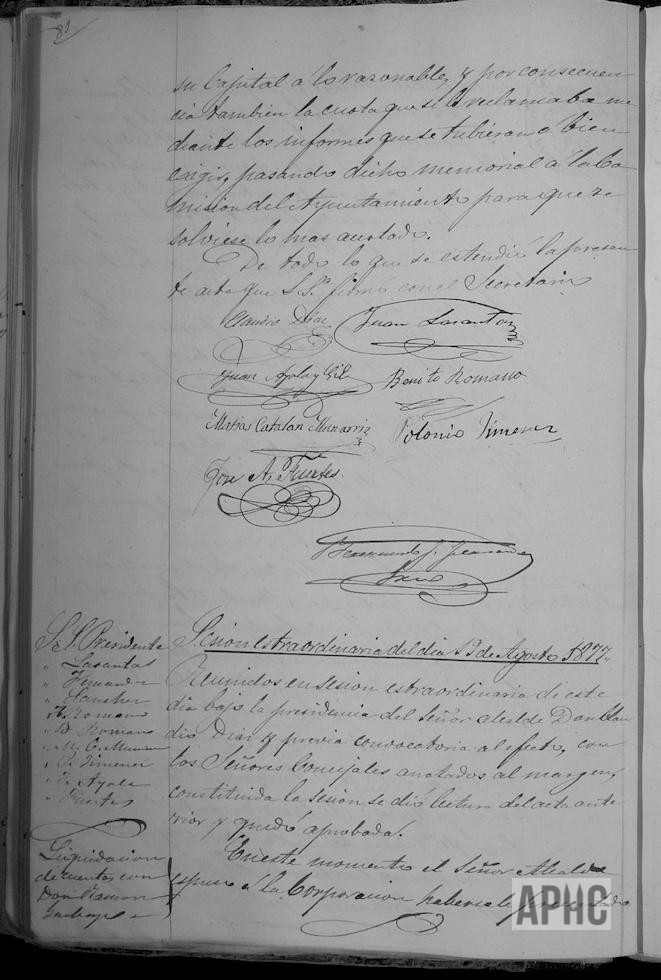 81
su Capital a lo razonable, y por consecuen
cia tambien la cuota que se le reclamaba me
diante los informes que se tubieran a bien
exigir, pasando dicho memorial a la Co
mision del Ayuntamiento para que re
solviese lo mas acertado.
De todo lo que se estendió la presen
te acta que S.S.ª firmó con el Secretario
Claudio Diaz
Juan Lasantas
Juan Ayala y Gil
Benito Romano
Matias Catalan Munarriz
Polonio Jimenez
Jose A. Fuertes
Srio
S.S. Presidente
" Lasantas
" Fernandez
" Sanchez
" R. Romano
" B. Romano
" M. C. Munarriz
" P. Jimenez
" J. Ayala
" Fuertes
Liquidacion
de cuentas con
Don Ramon
Sesion estraordinaria del dia 19 de Agosto 1877.
Reunidos en sesion estraordinaria de este
dia bajo la presidencia del Señor alcalde Don Clau
dio Diaz y previa convocatoria al efecto, con
los Señores Concejales anotados al margen,
constituida la sesion se dió lectura del acta ante
rior y quedó aprobada.
En este momento el Señor Alcalde
espuso a la Corporacion haberse le presentado
APHC